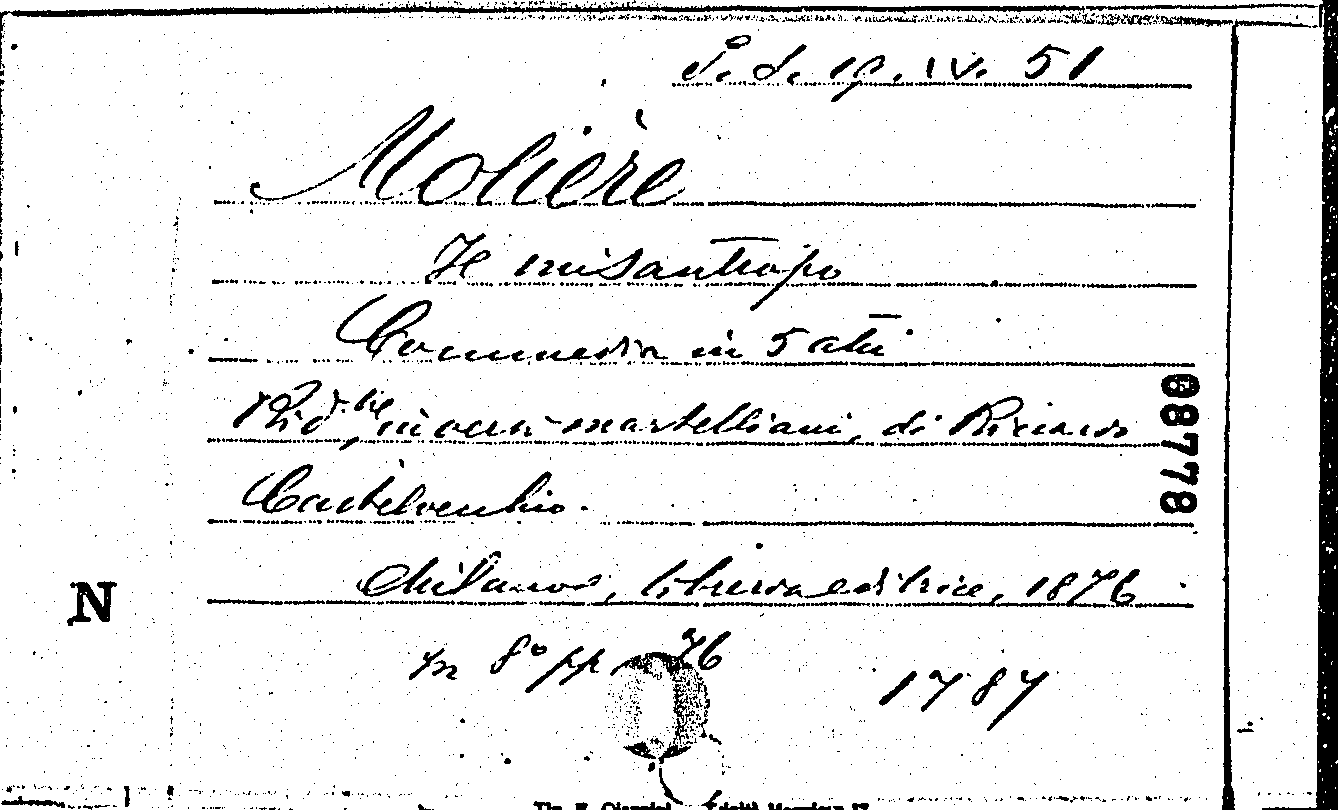 S. d. 19. IV. 51
Molière
Il misantropo
Commedia in 5 atti
Rid.ne, in versi martelliani, di Riccardo
Castelvecchio.
88778
Milano, libreria editrice, 1876
N
In 8° pp. 76
1787